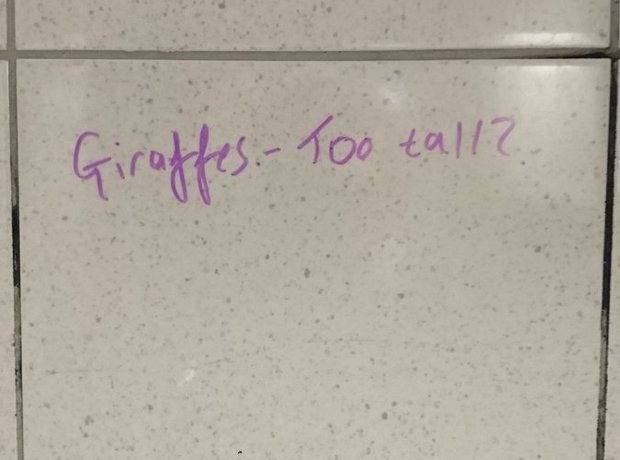 Giraffes.- Too tall?